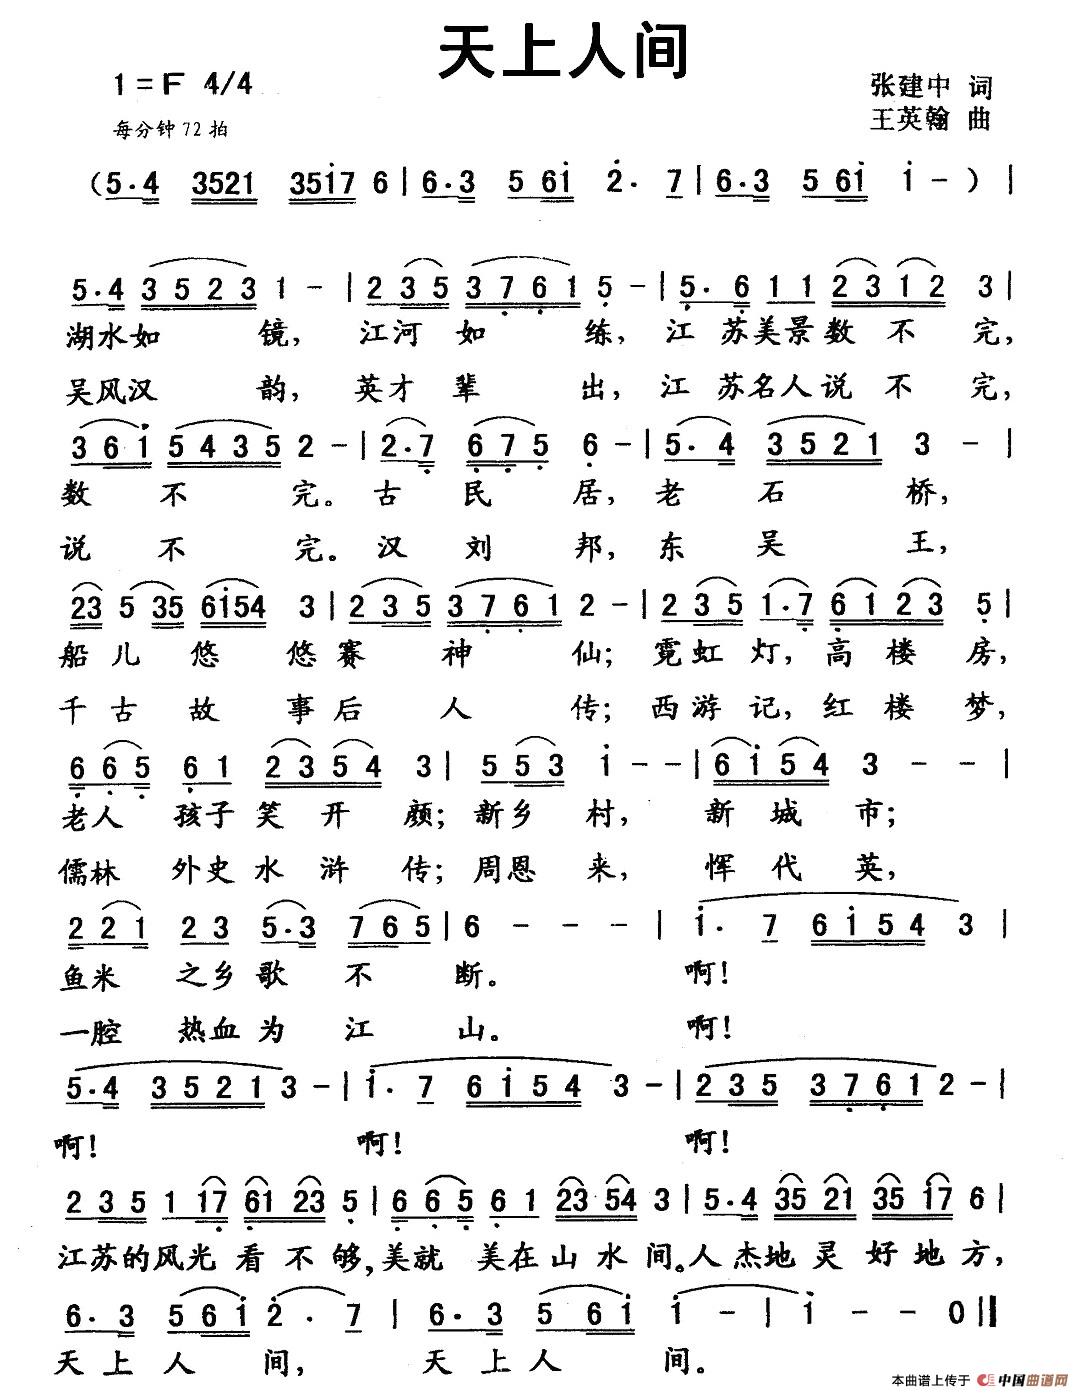 天上人间
1=F 4/4
张建中 词
每分钟72拍
王英翰 曲
(5·4 3521 3517 6 | 6·3 561 2· 7 | 6·3 561 1 - ) |
5·4 3523 1 - | 235 3761 5 - | 5· 6 11 2312 3 |
湖水如 镜, 江河 如 练, 江 苏美景数 不 完,
吴风汉 韵, 英才 辈 出, 江 苏名人说 不 完,
361 5435 2 - | 2·7 675 6 - | 5·4 3521 3 - |
数 不 完。 古 民 居, 老 石 桥,
说 不 完。 汉 刘 邦, 东 吴 王,
23 5 35 6154 3 | 235 3761 2 - | 235 1·7 6123 5 |
船 儿 悠 悠 赛 神 仙; 霓虹 灯, 高 楼 房,
千 古 故 事 后 人 传; 西游 记, 红 楼 梦,
665 61 2354 3 | 553 1 - - | 6154 3 - - |
老人 孩子 笑 开 颜; 新乡 村, 新 城 市;
儒林 外史 水 浒 传; 周恩 来, 恽 代 英,
221 23 5·3 765 | 6 - - - | 1· 7 6154 3 |
鱼米 之乡 歌 不 断。 啊!
一腔 热血 为 江 山。 啊!
5·4 3521 3 - | 1· 7 6154 3 - | 235 3761 2 - |
啊! 啊! 啊!
235 1 17 61 23 5 | 665 61 23 54 3 | 5·4 35 21 35 17 6 |
江苏的风光 看 不 够,美就 美在山 水 间。人 杰地 灵 好 地 方,
6·3 561 2· 7 | 6·3 561 1 - | 1 - - 0 ‖
天 上 人 间, 天 上 人 间。
本曲谱上传于 中国曲谱网